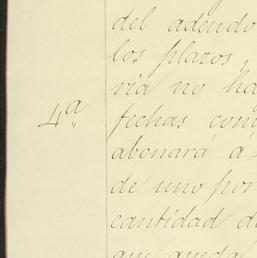 del adeudo
los plazos
vía no ha
4ª
fechas com
abonará a
de uno por
cantidad d
que queda